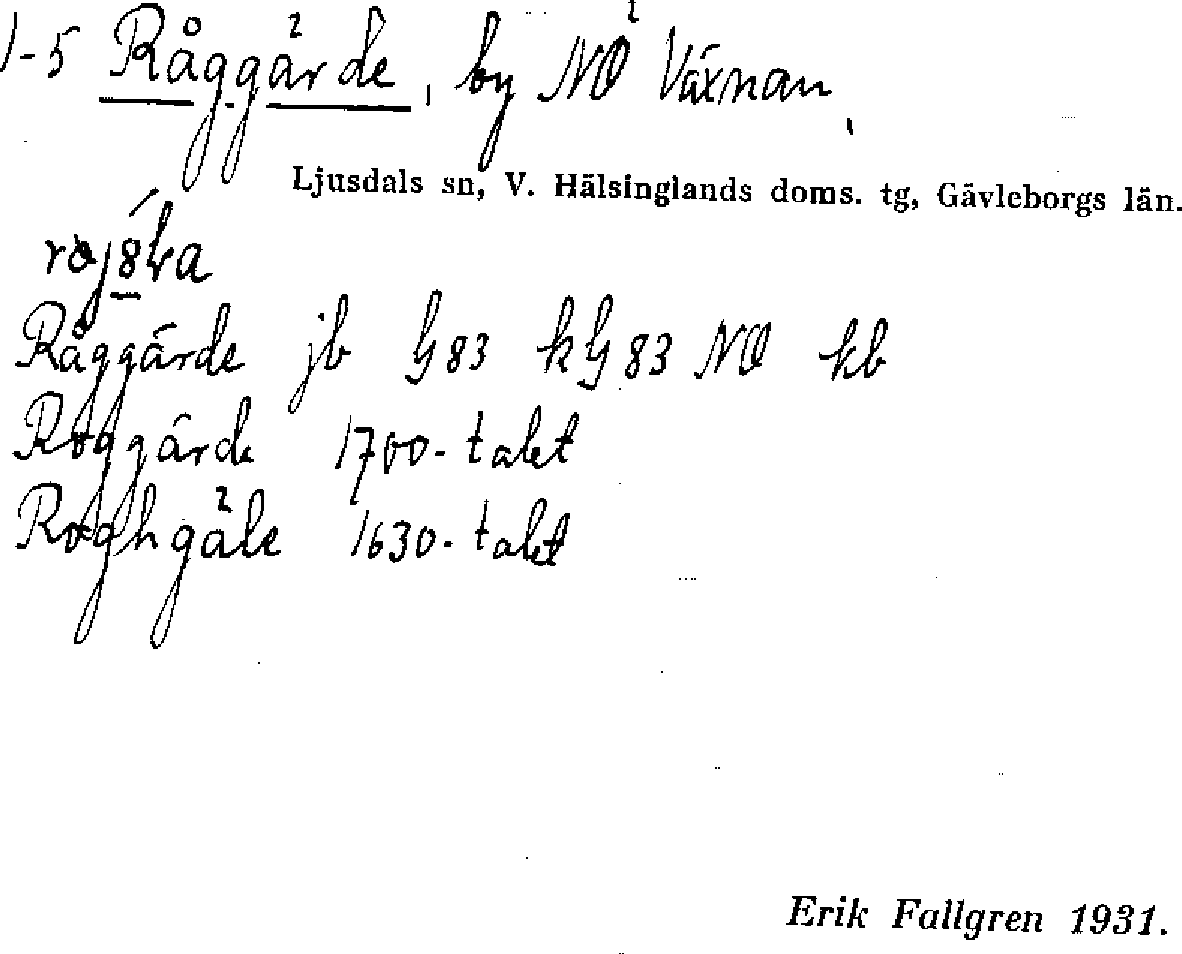 1-5 Råggärde, by NO Växnan.
Ljusdals sn, V. Hälsinglands doms. tg, Gävleborgs län.
Råggärde jb G83 kG83 NO kb
Roggärde 1700-talet
Roghgäle 1630-talet
Erik Fallgren 1931.